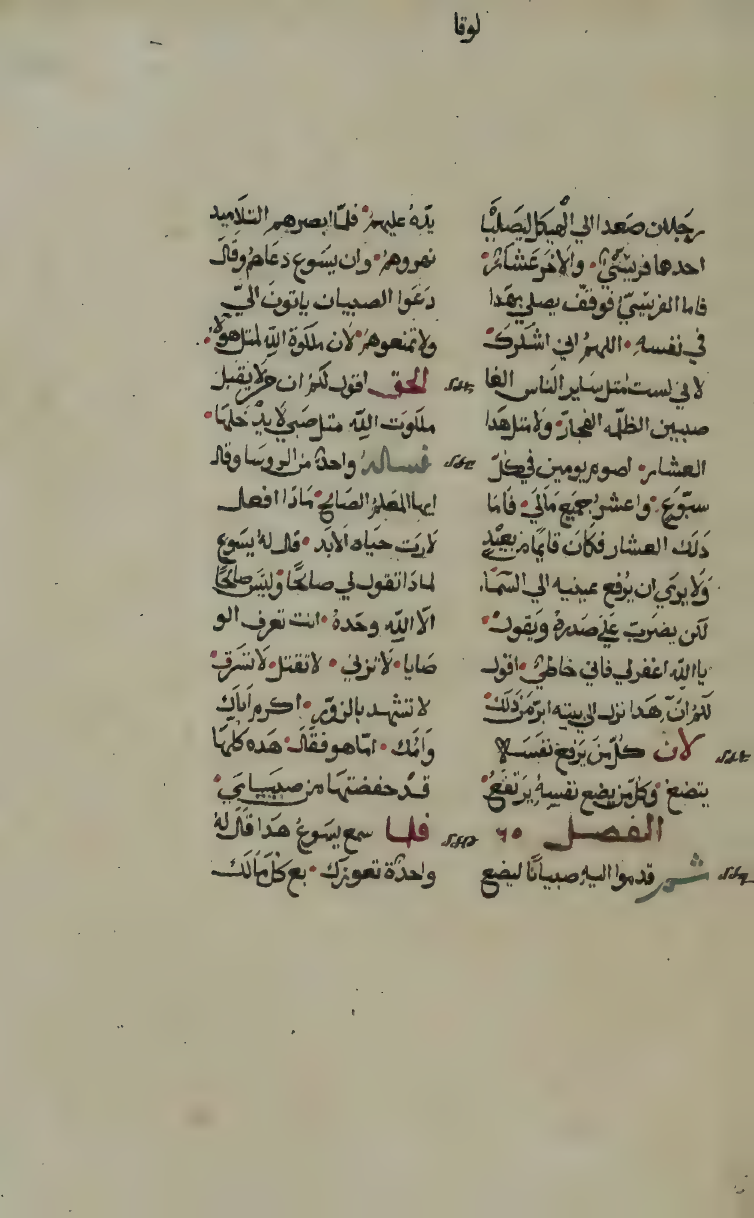 لوقا
رجلان صعدا الي الهيكل ليصليا
احدها فريسي والاخر عشار
فاما الفريسي فوقف يصلي بهدا
في نفسه اللهم اني اشكرك
لاني لست متل ساير الناس الغا
صبين الظلمه الفجار ولا متل هدا
العشار اصوم يومين في كل
سبوع واعشر جميع مالي فاما
دلك العشار فكان قايما من بعيد
ولا يري ان يرفع عينيه الي السما
لكن يضرب علي صدره ويقول
يا الله اغفر لي فاني خاطي اقول
لكم ان هدا نزل الي بيته ابر من دلك
لان كل من يرفع نفسه
يتضع وكل من يضع نفسه يرتفع
الفصل ٦٥
ثم قدموا اليه صبيانا ليضع
يده عليهم فلما ابصرهم التلاميد
نهروهم وان يسوع دعاهم وقال
دعوا الصبيان ياتون الي
ولا تمنعوهم لان ملكوة الله لمتل هولاء
الحق اقول لكم ان من لا يقبل
ملكوت الله متل صبي لا يدخلها
فساله واحد من الروسا وقال
ايها المعلم الصالح مادا افعل
لارت حياه الابد قال له يسوع
لمادا تقول لي صالحا وليس صالحا
الا الله وحده انت تعرف الو
صايا لا تزني لا تقتل لا تسرق
لا تشهد بالزور اكرم اباك
وامك اما هو فقال هده كلها
قد حفضتها من صبياي
فلما سمع يسوع هدا قال له
واحدة تعوزك بع كل مالك